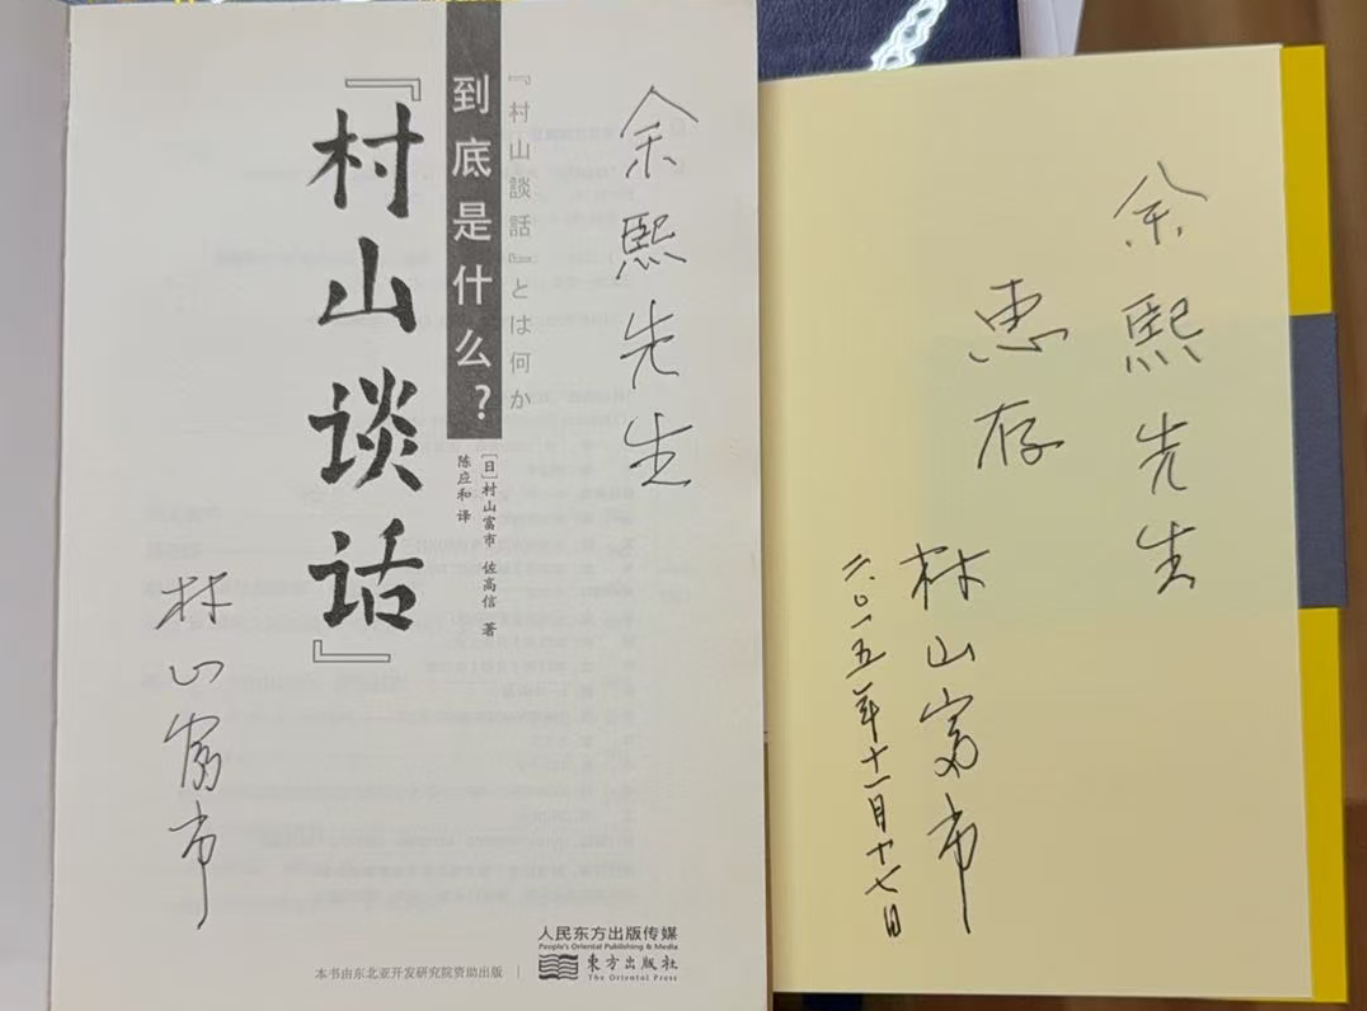 余熙先生
『村山談話』とは何か
到底是什么？
[日]村山富市 佐高信 著
陈应和 译
『村山谈话』
村山富市
人民东方出版传媒
People's Oriental Publishing & Media
東方出版社
The Oriental Press
本书由东北亚开发研究院资助出版
余熙先生
惠存
村山富市
二〇一五年十一月十七日